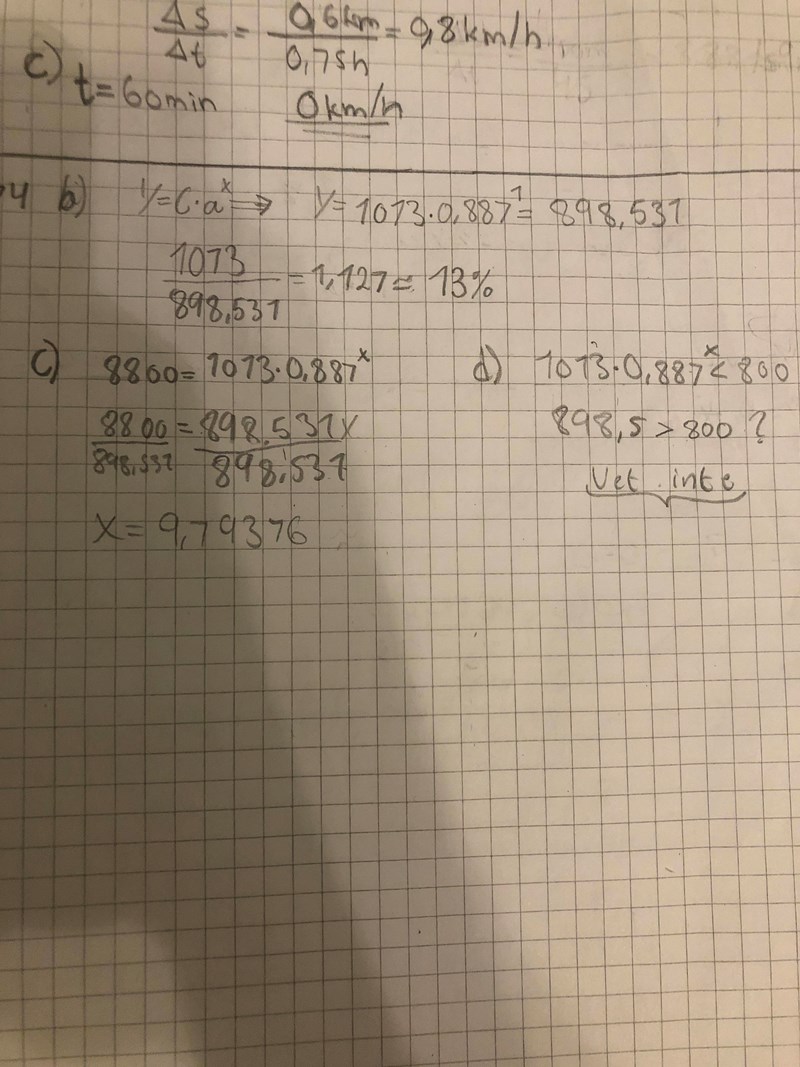 Δs/Δt = 0,6km/0,75h = 0,8km/h
c) t=60min 0km/h
4 b) y=C·a^x ⇒ y=1013·0,887^1= 898,531
1013/898,531 =1,127= 13%
c) 8800=1013·0,887^x
8800/898,531 = 898,531x/898,531
x= 9,79376
d) 1013·0,887^x < 800
898,5 > 800 ?
Vet inte